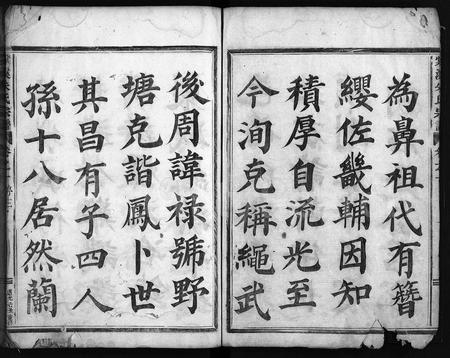 為鼻祖代有簪
纓佐畿輔因知
積厚自流光至
今洵克稱繩武
後周諱祿號野
塘克諧鳳卜世
其昌有子四人
孫十八居然蘭